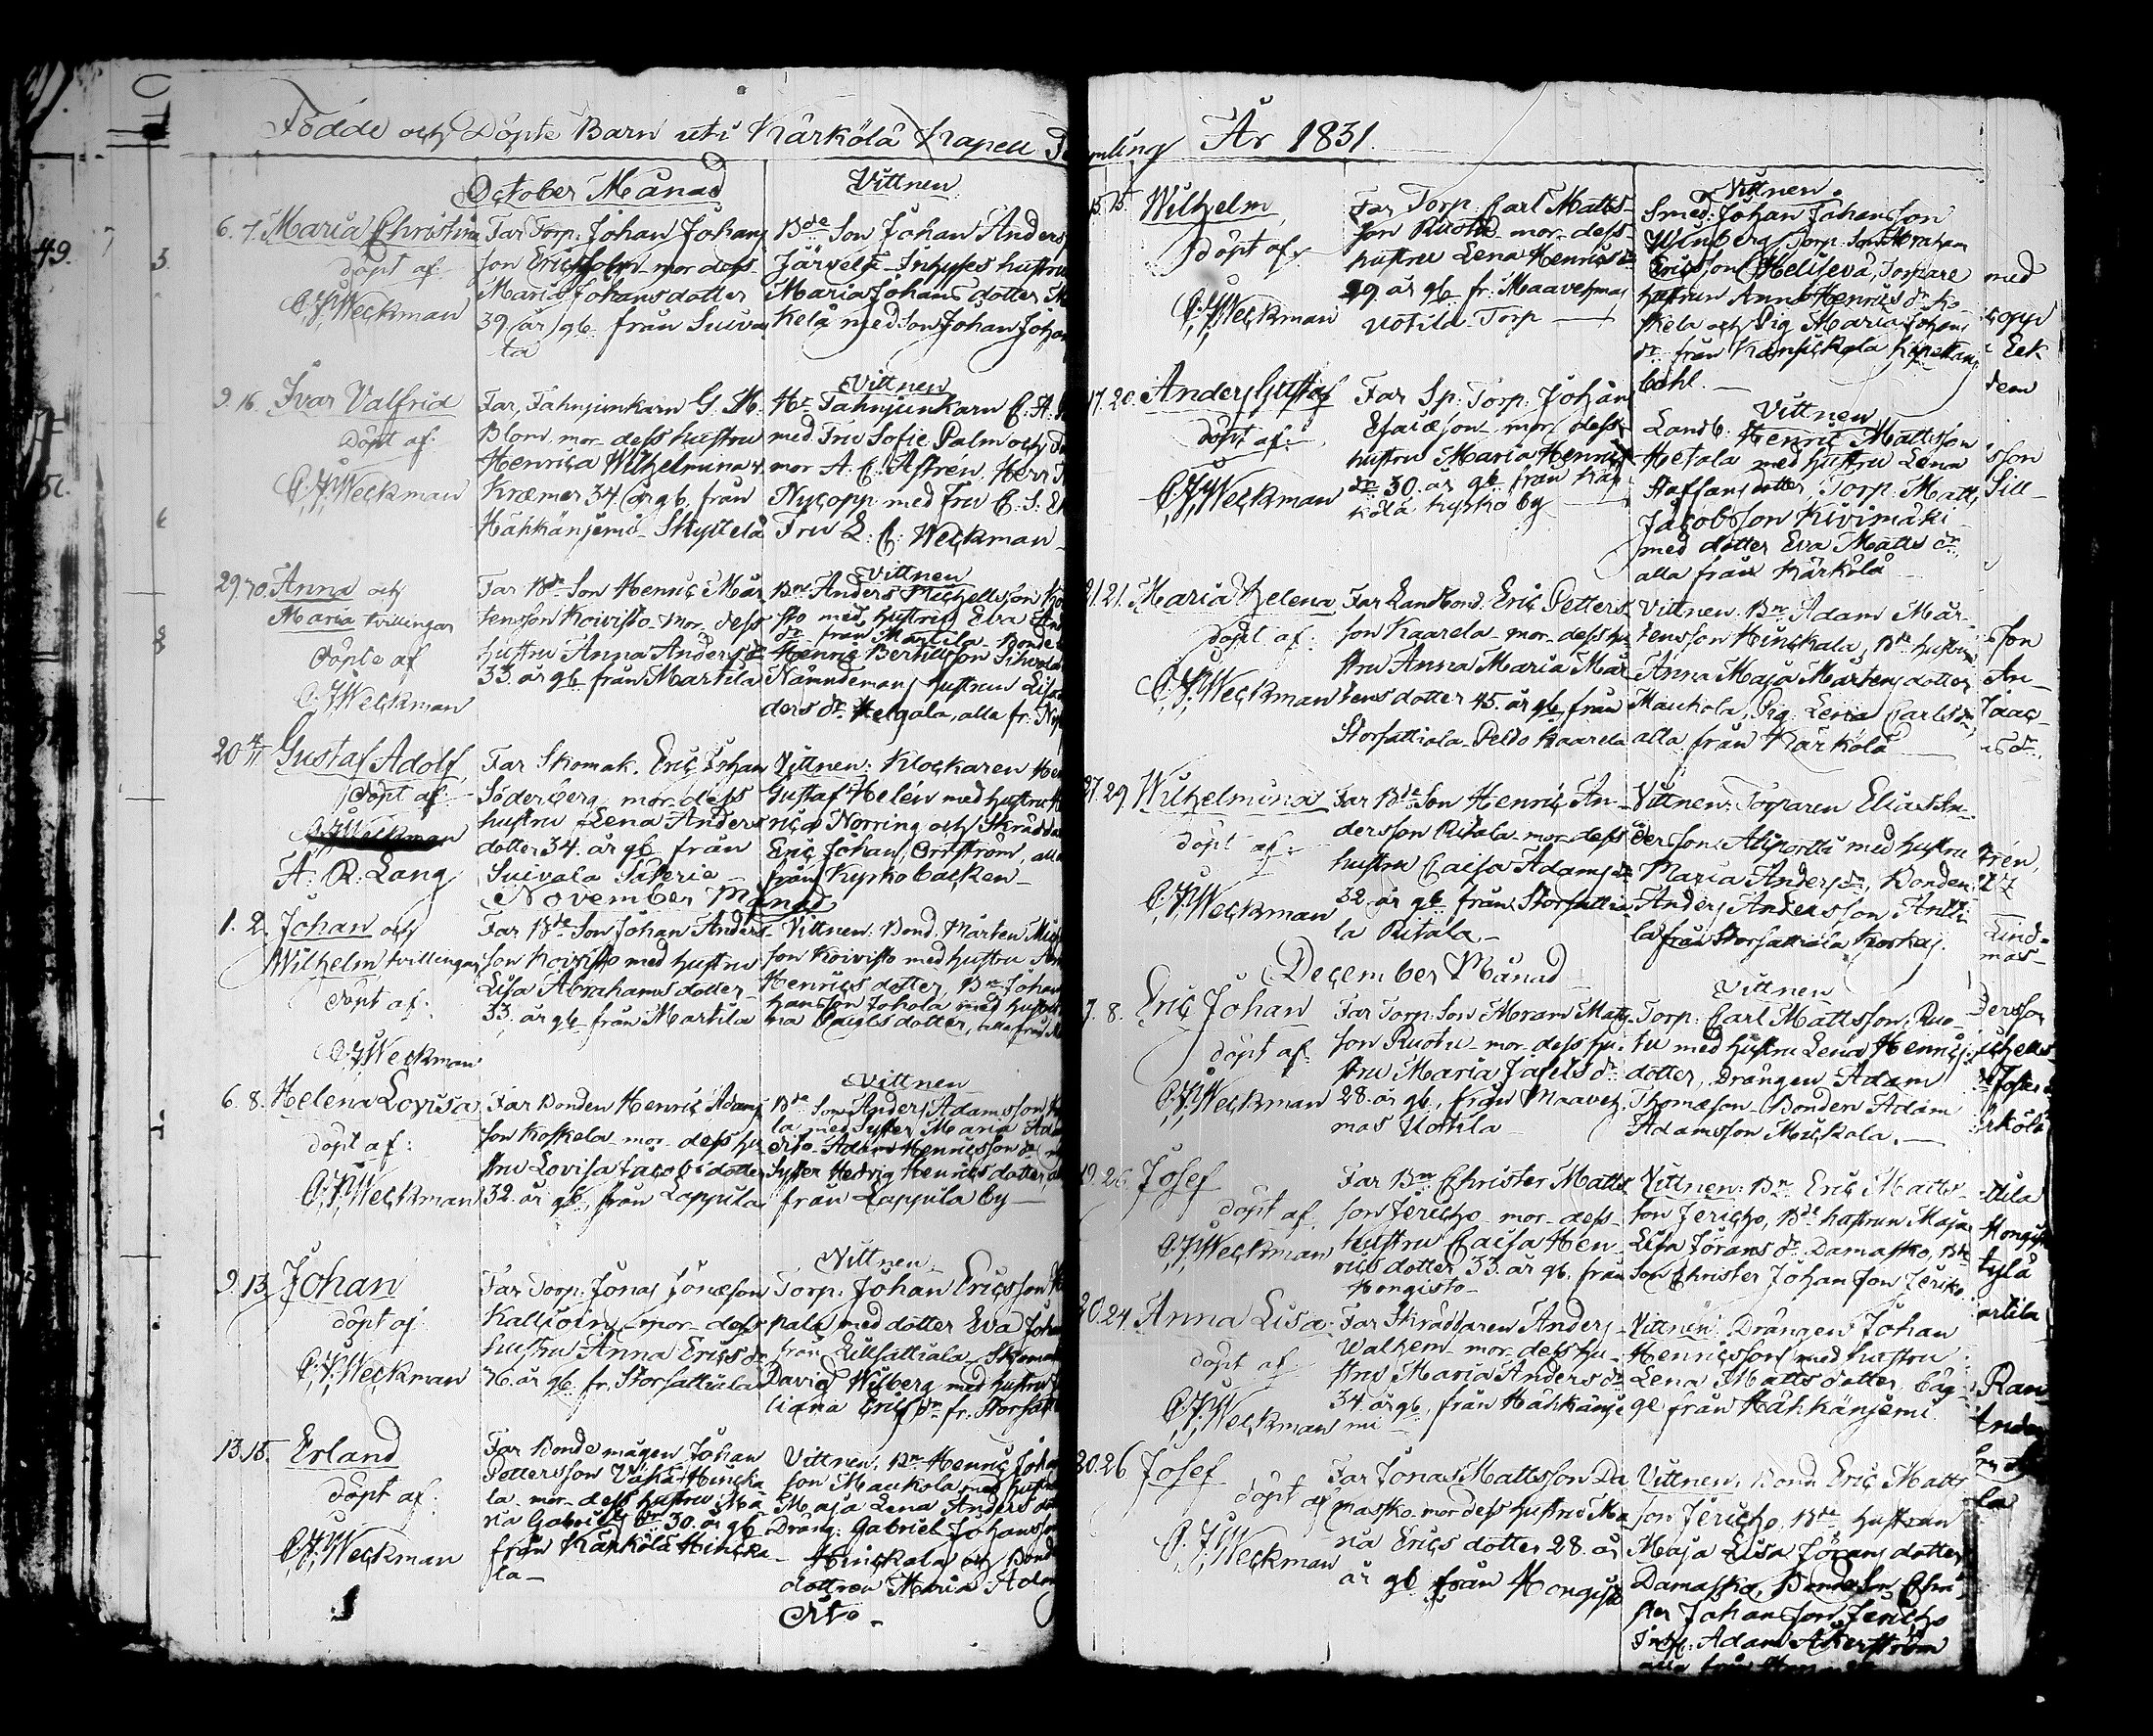 Födde och Döpte Barn uti Kärkölä Kapell
October Månad
Vittnen
6. 7. Maria Christina
döpt af
C. J. Weckman
Far Torp: Johan Johans
son Ericsholm mor dess
Maria Johansdotter
39 år gb från Suiva
la
Bde Son Johan Anders
Järvelä Inhyses hustru
Maria Johans dotter
kelä med Son Johan Johan
9. 16. Ivar Valfrid
Döpt af
C. J. Weckman
Far, Fahnjunkarn G. M.
Blom, mor dess hustru
Henrica Wilhelmina
Kræmer 34 år gb från
Hähkänjemi Skyttelä
Vittnen
Hr Fahnjunkarn C. A.
med Fru Sofie Palm och
mor A. C. Astrén, Herr
Nycopp med Fru C. S.
Fru L. C. Weckman
29. 30. Anna och
Maria tvillingar
döpte af
C. J. Weckman
Far Bde Son Henric Mår
tensson Koivisto mor dess
hustru Anna Anders dr
33. år gb från Martila
Vittnen
Bn Anders Michelsson
sto med hustru Eva
dr från Martila Bonde
Henric Bertillsson Sihvola
Nämndemans hustrun Lisa
ders dr Helgala, alla fr.
20 4/11 Gustaf Adolf
Döpt af
A. R. Lang
Far Skomak. Eric Johan
Söderberg mor dess
hustru Lena Anders
dotter 34. år gb från
Suivala Säterie
Vittnen: Klockaren
Gustaf Helén med hustru
rica Norring och Skrädda
Eric Johan Orrström, alla
från Kyrkobacken
November Månad
1. 2. Johan och
Wilhelm tvillingar
döpt af:
C. J. Weckman
Far Bde Son Johan Anders
son Koivisto med hustru
Lisa Abrahams dotter
33. år gb från Martila
Vittnen: Bond. Mårten Mich
son Koivisto med hustru
Henrics dotter, Bn Johan
hansson Johola med hustru
na Carls dotter, alla från
6. 8. Helena Lovisa
döpt af:
C. J. Weckman
Far Bonden Henric Adams
son Koskela mor dess hu
stru Lovisa Jacobs dotter
32. år gb från Lappila
Vittnen
Bde Son Anders Adamsson
la med Syster Maria
dito Adam Henricsson
Syster Hedvig Henrics dotter
från Lappila by
9. 13. Johan
döpt af
C. J. Weckman
Far Torp: Jonas Jonæson
Kallioin mor dess
hustru Anna Erics dr
36. år gb fr. Storsattiala
Vittnen
Torp: Johan Ericsson
pala med dotter Eva Johan
från Lillsattiala Skoma
David Wiberg med hustru
liana Erics dr fr. Storsatt
13. 15. Erland
döpt af:
C. J. Weckman
Far Bonde mågen Johan
Pettersson Vähä Hincka
la mor dess hustru Ma
ria Gabriels dr 30. år gb
från Kärkölä Hincka
la
Vittnen: Bn Henric Johan
son Maukola med hustru
Maja Lena Anders dot
Dräng: Gabriel Johansson
Hinckala och Bonde
dottren Maria Adam
Arvo
mling År 1831.
15. 15. Wilhelm
döpt af
C. J. Weckman
Far Torp: Carl Matts
son Ruotu mor dess
hustru Lena Henrics dr
29. år gb fr. Maavehmas
Uotila Torp
Vittnen
Smed: Johan Johansson
Winberg, Torp: Son Abraham
Ericsson Helisevä, Torpare
hustrun Anna Henrics dr Ko
skela och Pig Maria Johans
dr från
bohl.
17. 20. Anders Gustaf
döpt af:
C. J. Weckman
Far Sp: Torp: Johan
Esaiæson mor dess
hustru Maria Henrics
dr 30. år gb från Kär
kölä kyrko by
Vittnen
Landb: Henric Mattsson
Hetala med hustru Lena
Staffans dotter, Torp: Matts
Jacobsson Kivimäki
med dotter Eva Matts dr,
alla från Kärkölä
21. 21. Maria Helena
döpt af:
C. J. Weckman
Far Landbond. Eric Petters
son Kaarela mor dess hu
stru Anna Maria Mår
tens dotter 45. år gb från
Storsattiala Peldo Kaarela
Vittnen: Bn Adam Mår
tensson Hinckala, Bde hustrun
Anna Maja Mårtens dotter
Maukola, Pig: Lena Carls dr,
alla från Kärkölä
27. 29. Wilhelmina
döpt af:
C. J. Weckman
Far Bde Son Henric An
dersson Ritala mor dess
hustru Caisa Adams dr
32. år gb från Storsattia
la Ritala
Vittnen: Torparen Elias An
dersson Aliportti med hustru
Maria Anders dr, Bonden
Anders Andersson Antti
la från Storsattiala
December Månad
7. 8. Eric Johan
döpt af
C. J. Weckman
Far Torp: Son Abram Matts
son Ruotu mor dess hu
stru Maria Jafets dr
28. år gb, från Maaveh
mas Uotila
Vittnen
Torp: Carl Mattsson, Ruo
tu med hustru Lena Henrics
dotter, Drängen Adam
Thomæson Bonden Adam
Adamsson Mickala.
19. 26. Josef
döpt af
C. J. Weckman
Far Bn Christer Matts
son Jericho mor dess
hustru Caisa Hen
rics dotter 33. år gb, från
Hongisto
Vittnen: Bn Eric Matts
son Jericho, Bde hustrun Maja
Lisa Jörans dr Damasko, Bde
Son Christer Johan son Jeriko
20. 24. Anna Lisa
döpt af
C. J. Weckman
Far Skräddaren Anders
Walhem mor dess hu
stru Maria Anders dr
34. år gb, från Hähkänje
mi
Vittnen: Drängen Johan
Henricsson med hustru
Lena Matts dotter, bäg
ge från Hähkänjemi
20. 26. Josef
döpt af
C. J. Weckman
Far Jonas Mattsson Da
masko mor dess hustru Ma
ria Erics dotter 28. år
år gb från Hongisto
Vittnen: Bond Eric Matts
son Jericho, Bde hustrun
Maja Lisa Jörans dotter
Damasko, Bonde Son Chri
ster Johan son Jericho
Inh: Adam Åkerström